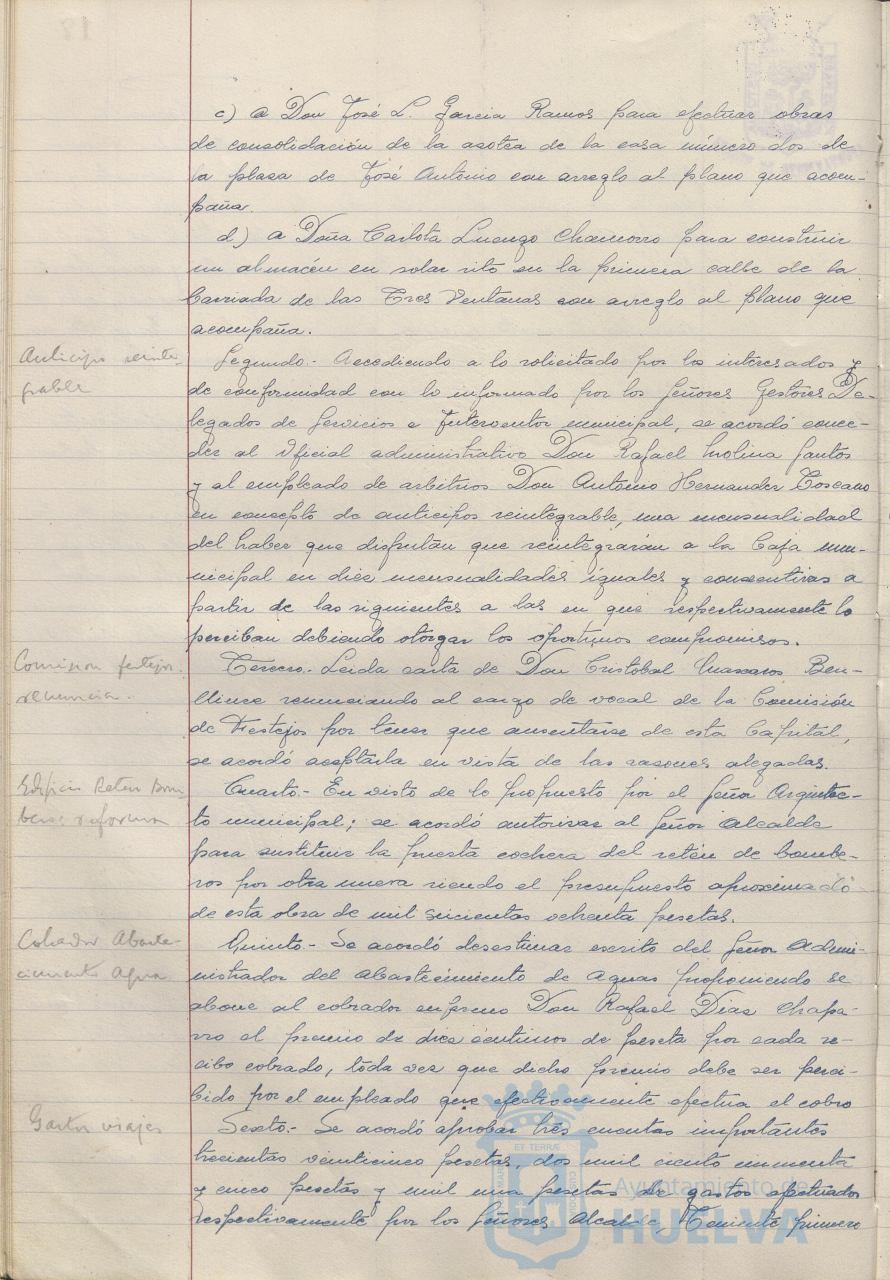 c) a Don José L. Garcia Ramos para efectuar obras
de consolidación de la azotea de la casa número dos de
la plaza de José Antonio con arreglo al plano que acom-
paña.
d) a Doña Carlota Luengo Chamorro para construir
un almacén en solar sito en la primera calle de la
barriada de las Tres Ventanas con arreglo al plano que
acompaña.
Anticipo reinte-
grable
Segundo.- Accediendo a lo solicitado por los interesados y
de conformidad con lo informado por los Señores Gestores De-
legados de Servicios e Interventor municipal, se acordó conce-
der al Oficial administrativo Don Rafael Molina Santos
y al empleado de arbitrios Don Antonio Hernandez Toscano
en concepto de anticipos reintegrable, una mensualidad
del haber que disfrutan que reintegrarán a la Caja mu-
nicipal en diez mensualidades iguales y consecutivas a
partir de las siguientes a las en que respectivamente lo
perciban debiendo otorgar los oportunos compromisos.
Comisión festejos.
renuncia.
Tercero.- Leida carta de Don Cristobal Ben-
lliure renunciando al cargo de vocal de la Comisión
de Festejos por tener que ausentarse de esta Capital,
se acordó aceptarla en vista de las razones alegadas.
Edificio Reten Bom-
beros reforma
Cuarto.- En visto de lo propuesto por el Señor Arquitec-
to municipal; se acordó autorizar al Señor Alcalde
para sustituir la puesta cochera del retén de bombe-
ros por otra nueva siendo el presupuesto aproximado
de esta obra de mil seicientas ochenta pesetas.
Cobrador Abaste-
cimiento Agua
Quinto.- Se acordó desestimar escrito del Señor Admi-
nistrador del abastecimiento de aguas proponiendo se
abone al cobrador enfermo Don Rafael Diaz Chapa-
rro el premio de diez centimos de peseta por cada re-
cibo cobrado, toda vez que dicho premio debe ser perci-
bido por el empleado que efectivamente efectua el cobro
Gastos viajes
Sexto.- Se acordó aprobar tres cuentas importantes
trecientas veinticinco pesetas, dos mil ciento
y cinco pesetas y mil una pesetas de gastos efectuados
respectivamente por los Señores Alcalde, Teniente primero
Ayuntamiento de
HUELVA